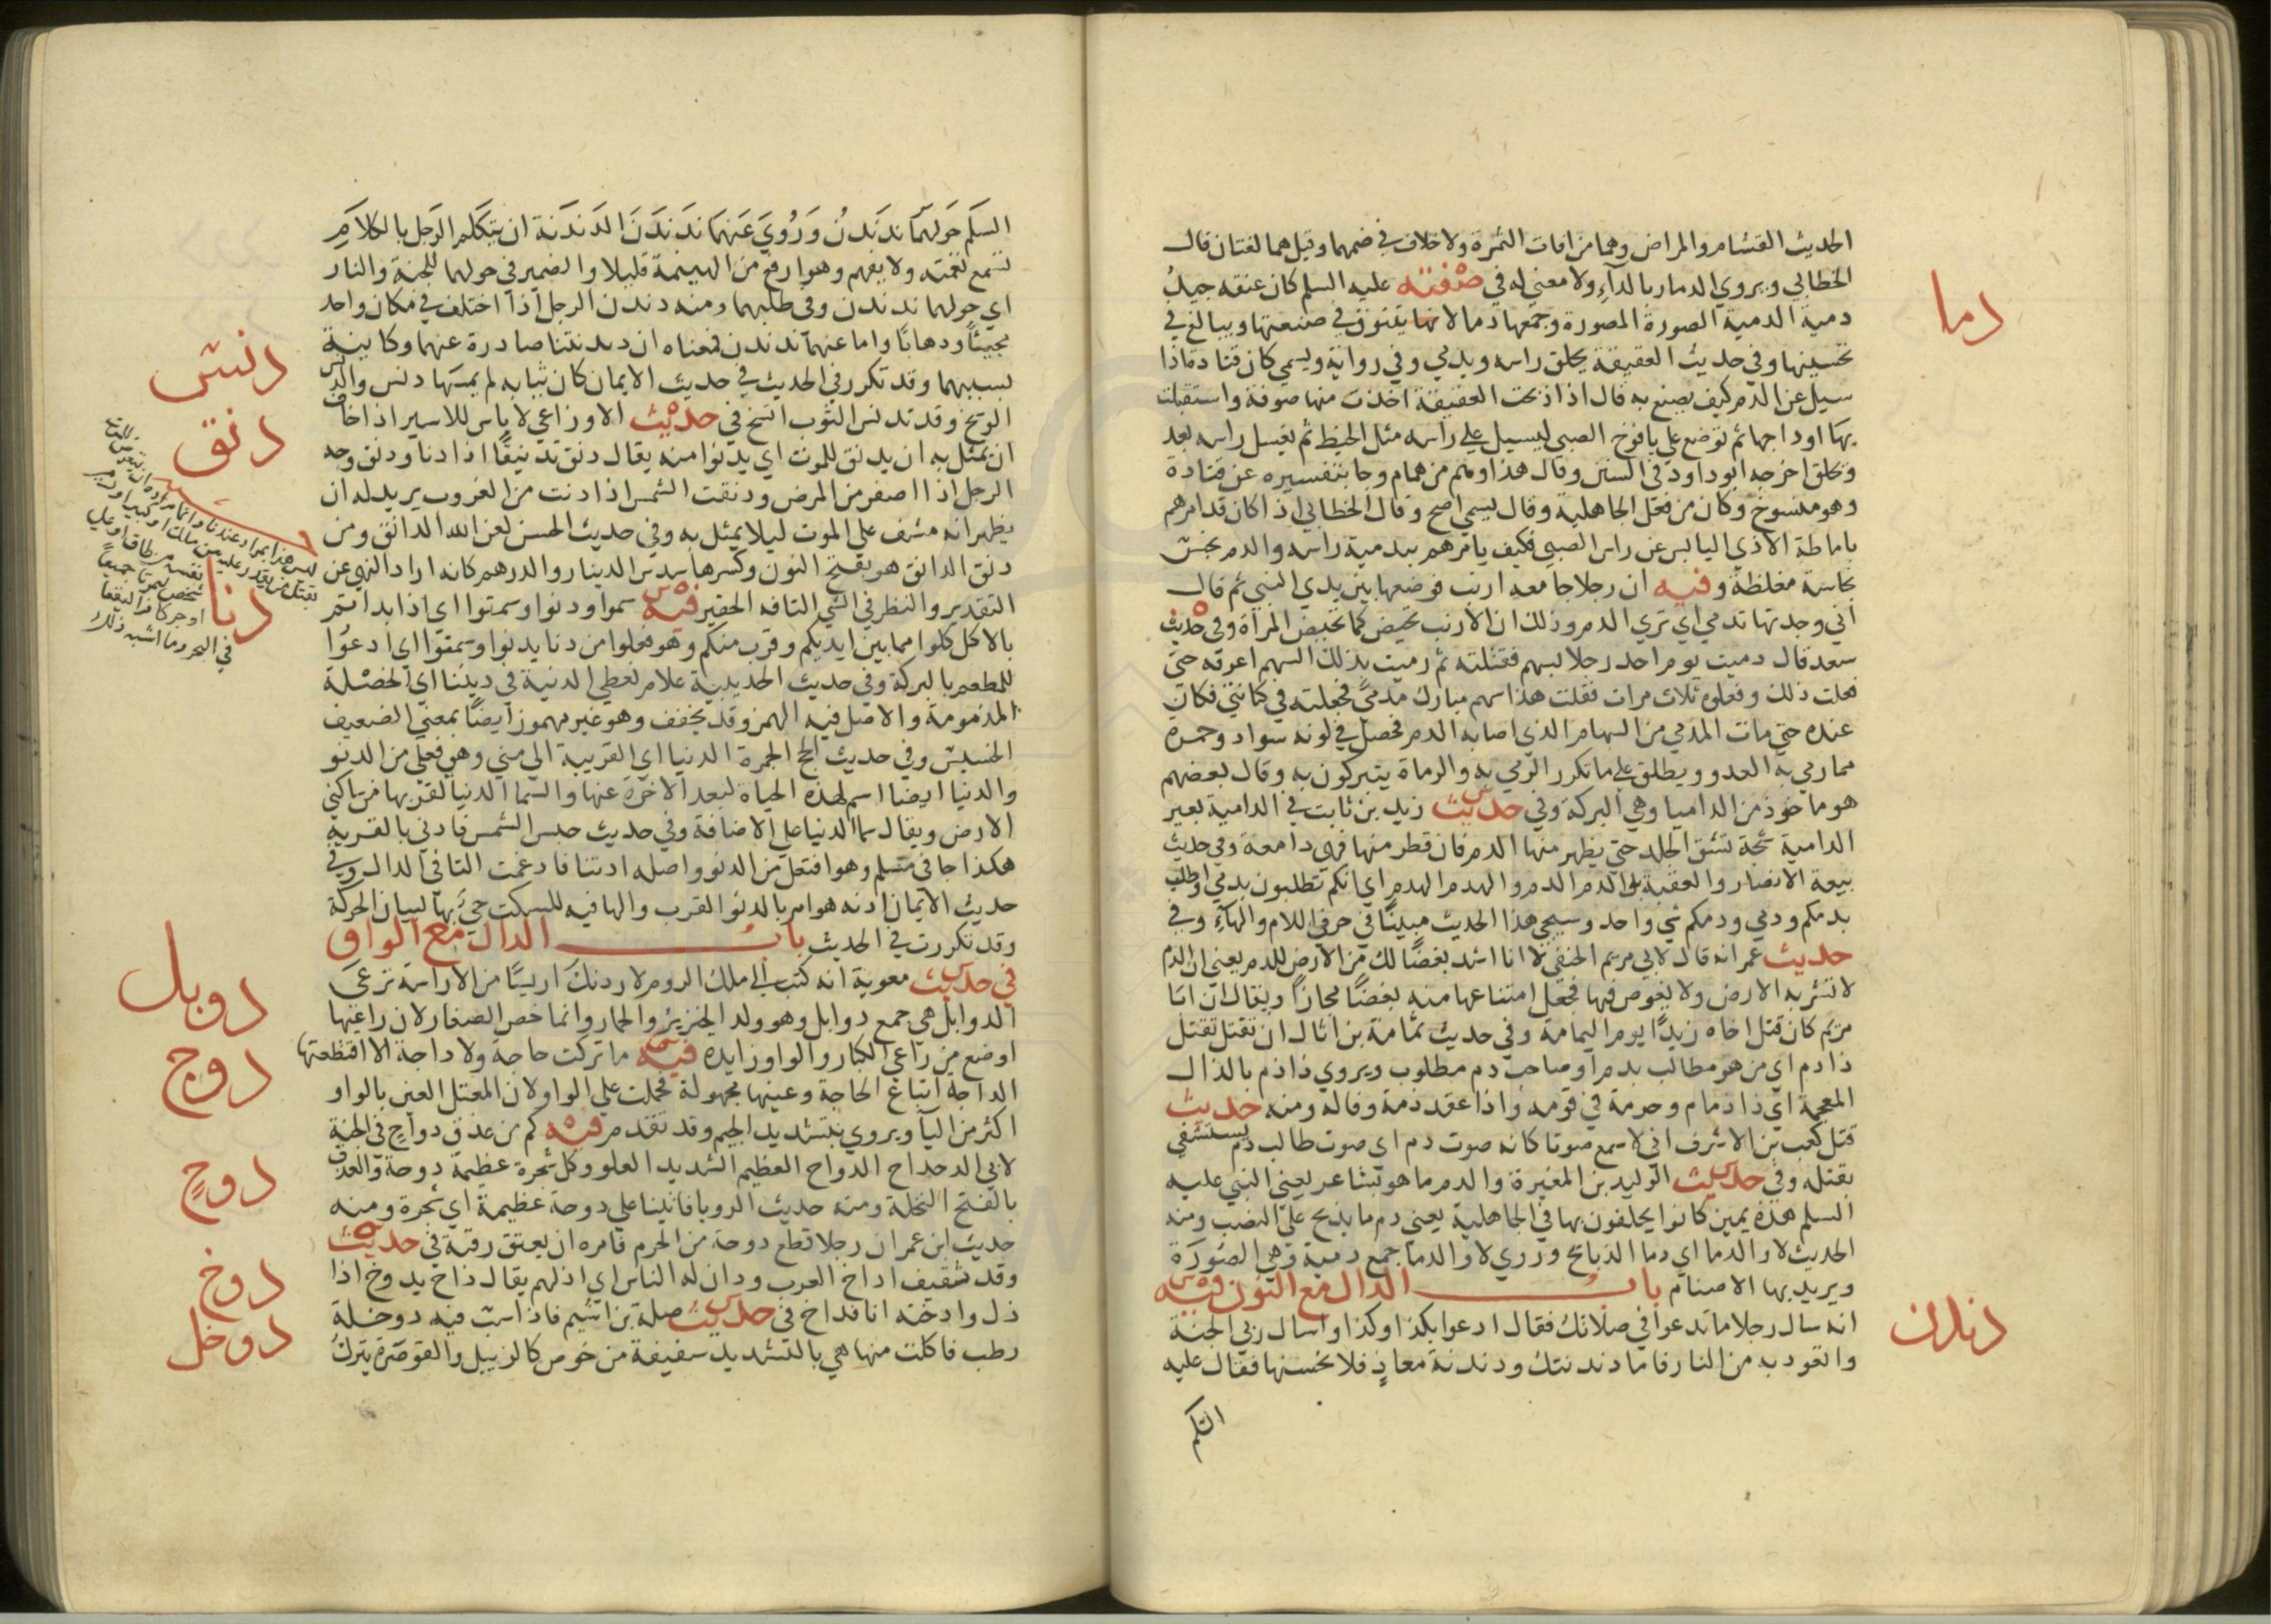 الحديث القشام والمراض وهما من افات الثمرة ولا خلاف في ضمهما وقيل هما لغتان قال
دما
الخطابي ويروي الدمار بالدآء ولا معني له في صفته عليه السلم كان عنقه جيدُ
دمية الدمية الصورة المصورة وجمعها دما لانها يتنوق في صنعتها ويبالغ في
تحسينها وفي حديث العقيقة يحلق راسه ويدمي وفي رواية ويسمي كان قتادة اذا
سيل عن الدم كيف يصنع به قال اذا ذبحت العقيقة اخذت منها صوفة واستقبلت
بها اوداجها ثم توضع علي يافوخ الصبي ليسيل علي راسه مثل الخيط ثم يغسل راسه بعد
وتحلق اخرجه ابو داود في السنن وقال هذا وهم من همام وجا بتفسيره عن قتادة
وهو منسوخ وكان من فعل الجاهلية وقال يسمي اصح وقال الخطابي اذا كان قد امرهم
باماطة الاذي اليابس عن راس الصبي فكيف يامرهم بتدمية راسه والدم نجس
نجاسة مغلظة وفيه ان رجلا جا معه ارنب فوضعها بين يدي النبي ثم قال
اني وجدتها تدمي اي تري الدم وذلك ان الارنب تحيض كما تحيض المرأة وفي حديث
سعد قال رميت يوم احد رجلا بسهم فقتلته ثم رميت بذلك السهم اعرفه حتي
فعلت ذلك وفعلوه ثلاث مرات فقلت هذا سهم مبارك مدمي فجعلته في كنانتي فكان
عنده حتي مات المدمي من السهام الذي اصابه الدم فحصل في لونه سواد وحمرة
مما رمي به العدو ويطلق علي ما تكرر الرمي به والرماة يتبركون به وقال بعضهم
هو ماخوذ من الداميا وهي البركة وفي حديث زيد بن ثابت في الدامية بعير
الدامية شجة تشق الجلد حتي يظهر منها الدم فان قطر منها فهي دامعة وفي حديث
بيعة الانصار والعقبة بل الدم الدم والهدم الهدم اي انكم تطلبون بدمي واطلب
بدمكم ودمي ودمكم شي واحد وسيجي هذا الحديث مبينًا في حرفي اللام والهآء وفي
حديث عمر انه قال لابي مريم الحنفي لانا اشد بغضًا لك من الارض للدم يعني ان الدم
لا تشربه الارض ولا يغوص فيها فجعل امتناعها منه بغضًا مجازًا ويقال ان ابا
مريم كان قتل اخاه زيدًا يوم اليمامة وفي حديث ثمامة بن اثال ان تقتل تقتل
ذا دم اي من هو مطالب بدم او صاحب دم مطلوب ويروي ذا ذم بالذال
المعجمة اي ذا ذمام وحرمة في قومه واذا عقد ذمة وفا له ومنه حديث
قتل كعب بن الاشرف اني لاسمع صوتا كانه صوت دم اي صوت طالب دم يستشفي
بقتله وفي حديث الوليد بن المغيرة والدم ما هو بشاعر يعني النبي عليه
السلم هذه يمين كانوا يحلفون بها في الجاهلية يعني دم ما يذبح علي النصب ومنه
الحديث لا والدما اي دما الذبايح وروي لا والدما جمع دمية وهي الصورة
ويريد بها الاصنام باب الدال مع النون فيه
دندن
انه سال رجلا ما تدعوا في صلاتك فقال ادعوا بكذا وكذا واسال ربي الجنة
واتعوذ به من النار فاما دندنتك ودندنة معاذ فلا نحسنها فقال عليه
السلم
السلم حولهما ندندن وروي عنهما ندندن الدندنة ان يتكلم الرجل بالكلام
تسمع نغمته ولا يفهم وهو ارفع من الهينمة قليلا والضمير في حولهما للجنة والنار
اي حولهما ندندن وفي طلبهما ومنه دندن الرجل اذا اختلف في مكان واحد
مجيئًا وذهابًا واما عنهما ندندن فمعناه ان دندنتنا صادرة عنهما وكاينة
دنس
بسببهما وقد تكرر في الحديث في حديث الايمان كان ثيابه لم يمسها دنس والدنس
دنق
الوسخ وقد تدنس الثوب اتسخ في حديث الاوزاعي لا باس للاسير اذا خاف
ان يمثل به ان يدنق للموت اي يدنوا منه يقال دنق تدنيقًا اذا دنا ودنق وجه
الرجل اذا اصفر من المرض ودنقت الشمس اذا دنت من الغروب يريد له ان
يظهر انه مشف علي الموت ليلا يمثل به وفي حديث الحسن لعن الله الدانق ومن
دنق الدانق هو بفتح النون وكسرها سدس الدينار والدرهم كانه اراد النهي عن
دنا
التقدير والنظر في الشي التافه الحقير فيه سموا ودنوا وسمتوا اي اذا بداتم
بالاكل كلوا مما بين ايديكم وقرب منكم وهو فعلوا من دنا يدنوا وسمتوا اي ادعوا
للمطعم بالبركة وفي حديث الحديبية علام نعطي الدنية في ديننا اي الخصلة
المذمومة والاصل فيه الهمز وقد يخفف وهو غير مهموز ايضًا بمعني الضعيف
الخسيس وفي حديث الحج الجمرة الدنيا اي القريبة الي مني وهي فعلي من الدنو
والدنيا ايضا اسم لهذه الحياة لبعد الاخرة عنها والسما الدنيا لقربها من ساكني
الارض ويقال سما الدنيا علي الاضافة وفي حديث حبس الشمس فادني بالقرية
هكذا جا في مسلم وهو افتعل من الدنو واصله ادتنا فادغمت التا في الدال وفي
حديث الايمان ادنه هو امر بالدنو القرب والها فيه للسكت جي بها لبيان الحركة
وقد تكررت في الحديث باب الدال مع الواو
دوبل
في حديث معوية انه كتب الي ملك الروم لاردنك اريسًا من الاراسة ترعي
الدوابل هي جمع دوابل وهو ولد الخنزير والحمار وانما خص الصغار لان راعيها
دوج
اوضع من راعي الكبار والواو زايدة فيه ما تركت حاجة ولا داجة الا اقتطعتها
الداجة اتباع الحاجة وعينها مجهولة فحملت علي الواو لان المعتل العين بالواو
اكثر من اليا ويروي بتشديد الجيم وقد تقدم فيه كم من عذق دواح في الجنة
دوح
لابي الدحداح الدواح العظيم الشديد العلو وكل شجرة عظيمة دوحة والعذق
بالفتح النخلة ومنه حديث الرويا فاتينا علي دوحة عظيمة اي شجرة ومنه
حديث ابن عمر ان رجلا قطع دوحة من الحرم فامره ان يعتق رقبة في حديث
دوخ
وقد ثقيف اداخ العرب ودان له الناس اي اذلهم يقال داخ يدوخ اذا
دوخل
ذل وادخته انا فداخ في حديث صلة بن اشيم فاذا سب فيه دوخلة
رطب فاكلت منها هي بالتشديد سفيفة من خوص كالزبيل والقوصرة يترك